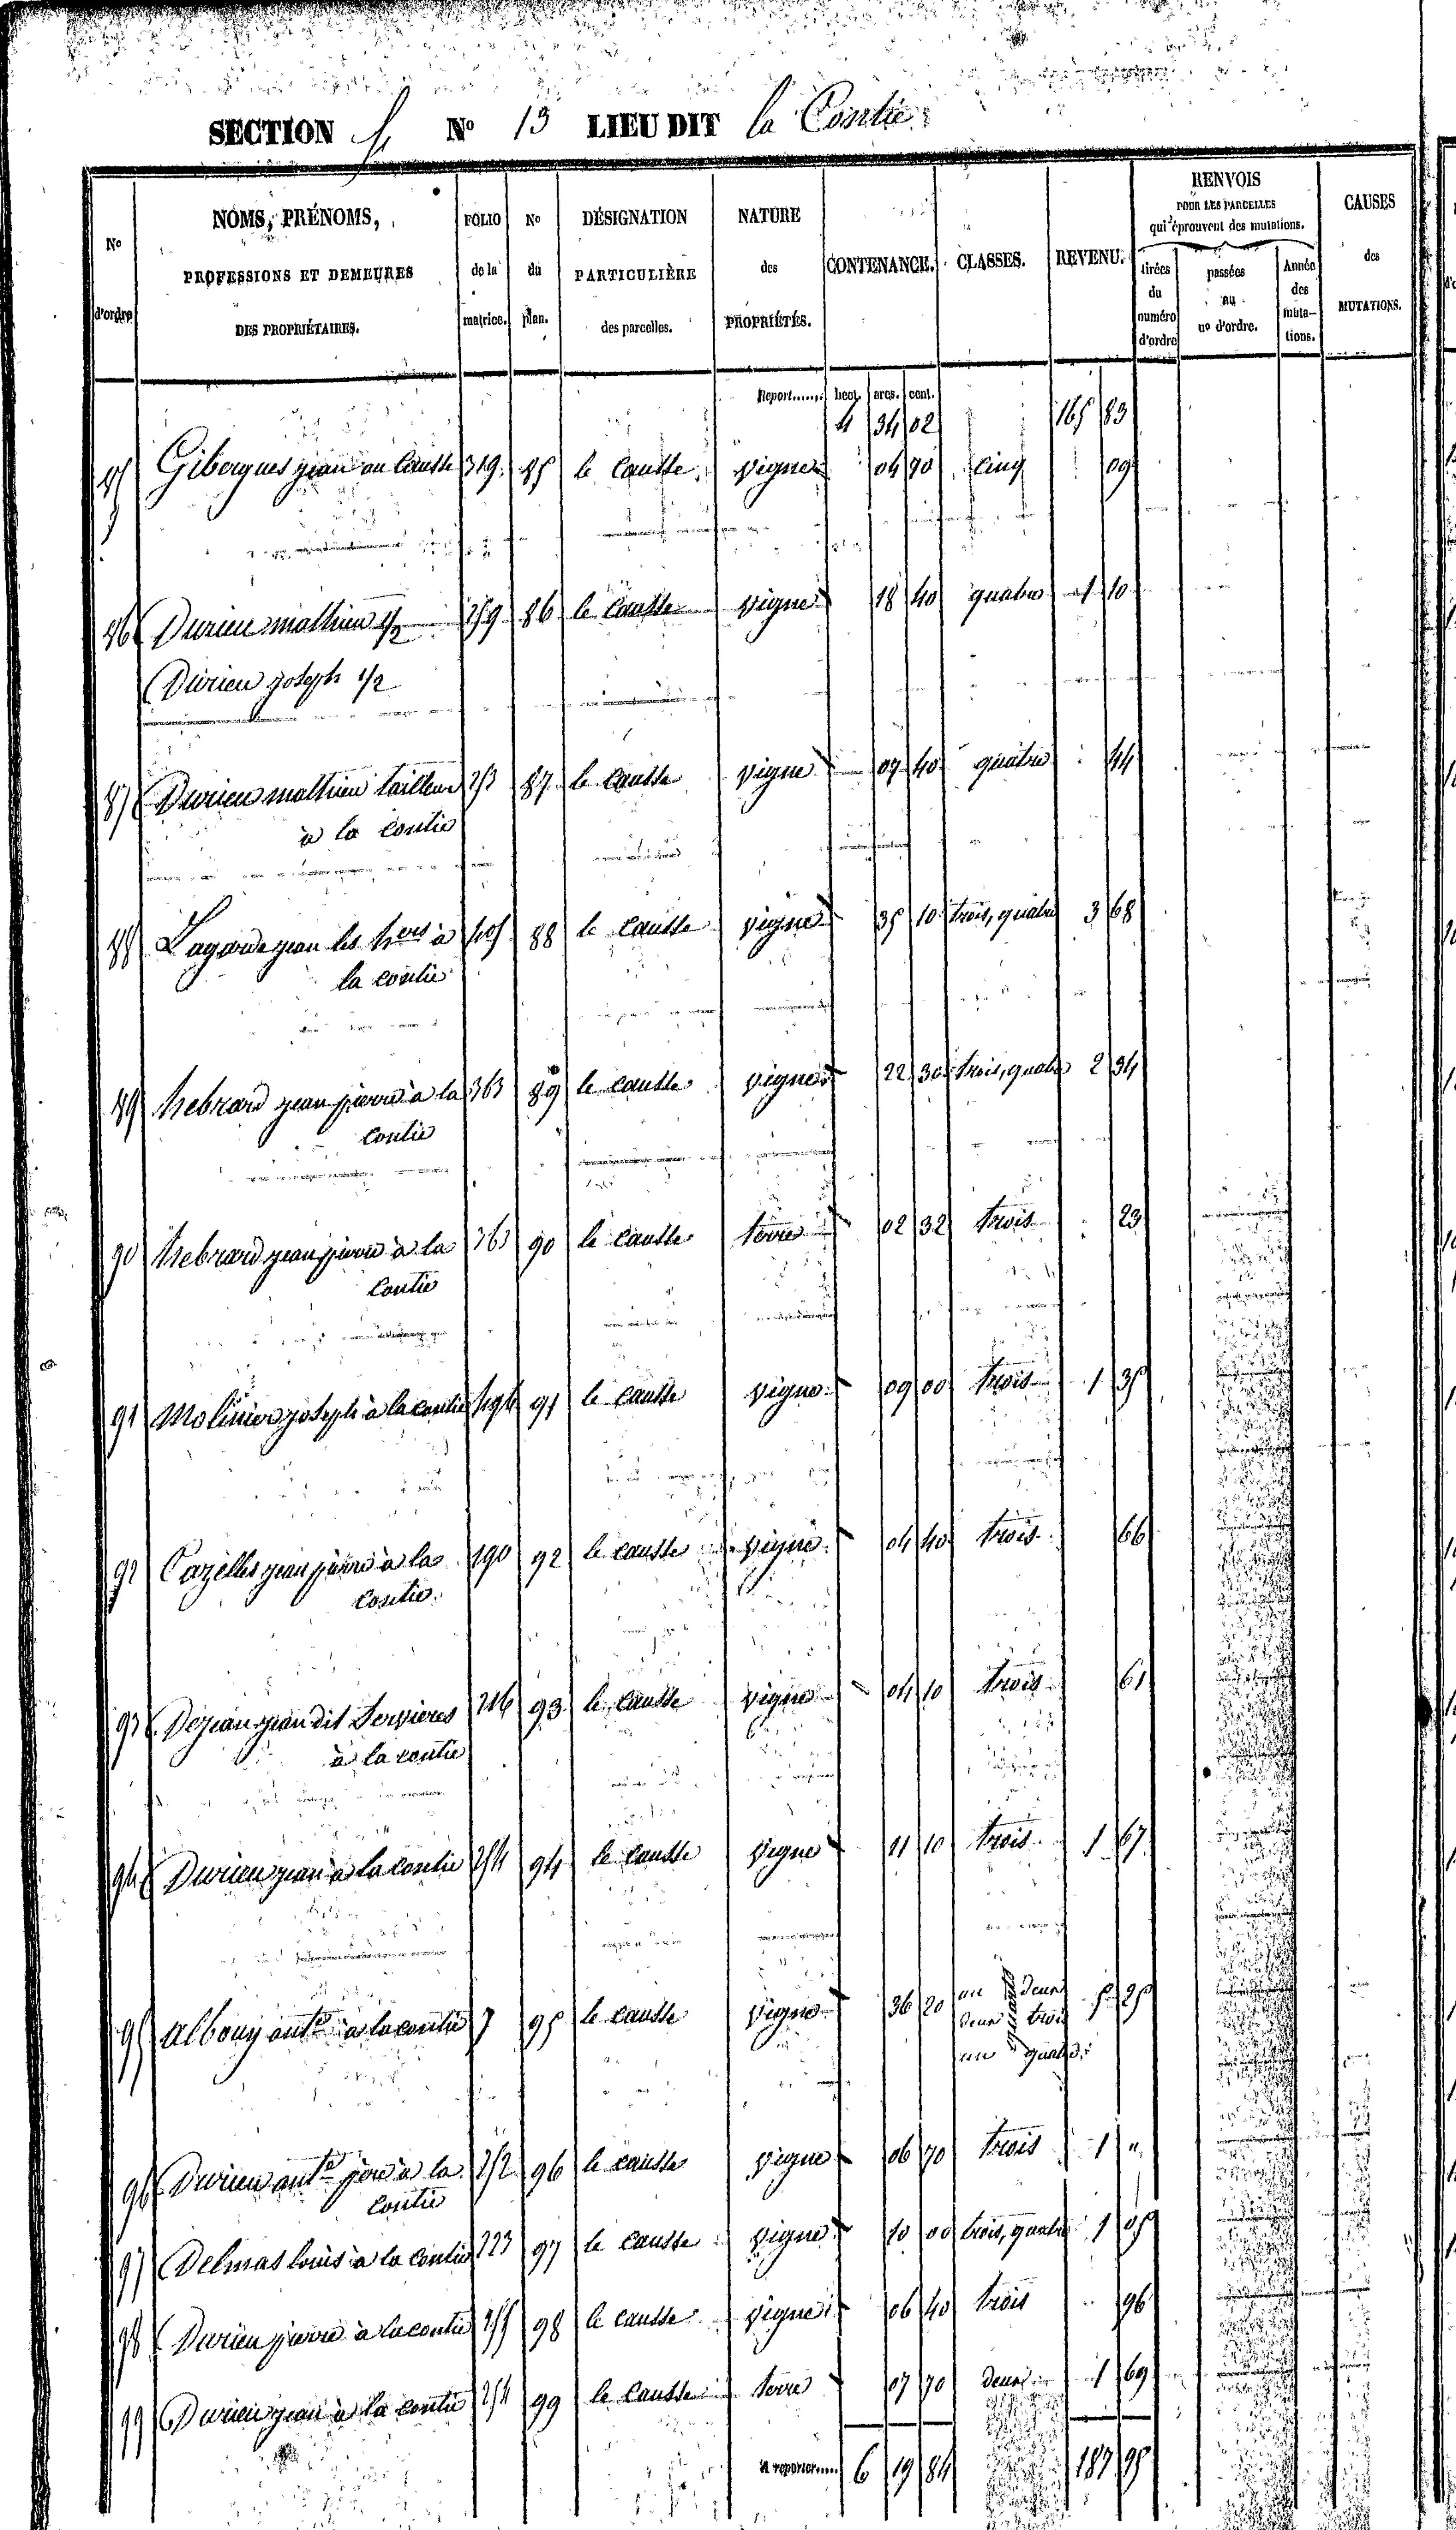 SECTION f. No 13 LIEU DIT la Contie.
No d'ordre | NOMS, PRÉNOMS, PROFESSIONS ET DEMEURES DES PROPRIÉTAIRES. | FOLIO de la matrice. | No du plan. | DÉSIGNATION PARTICULIÈRE des parcelles. | NATURE des PROPRIÉTÉS. | CONTENANCE. | CLASSES. | REVENU. | RENVOIS POUR LES PARCELLES qui éprouvent des mutations. | CAUSES des MUTATIONS.
tirées du numéro d'ordre | passées au no d'ordre. | Année des mutations.
Report...... hect. ares. cent.
4 34 02 165 83
85 Gibergues jean au Causse 319 85 le Causse vigne 04 70 cinq 09
86 Durieu mathieu 1/2 259 86 le Causse vigne 18 40 quatre 1 10
Durieu joseph 1/2
87 Durieu mathieu tailleur 253 87 le Causse vigne 07 40 quatre 44
à la Contie
88 Lagarde jean les hers à 405 88 le Causse vigne 35 10 trois, quatre 3 68
la contie
89 hebrard jean pierre à la 363 89 le causse vigne 22 30 trois, quatre 2 34
Contie
90 hebrard jean pierre à la 363 90 le causse terre 02 32 trois 23
Contie
91 Molinier joseph à la contie 496 91 le causse vigne 09 00 trois 1 35
92 Cazelles jean pierre à la 190 92 le causse vigne 04 40 trois 66
Contie
93 Dejean jean dit Servieres 216 93 le Causse vigne 04 10 trois 61
à la contie
94 Durieu jean à la contie 254 94 le causse vigne 11 10 trois 1 67
95 albouy ante à la contie 7 95 le causse vigne 36 20 un deux 5 25
deux quarts trois
un quatre
96 Durieu ante père à la 252 96 le causse vigne 06 70 trois 1 "
Contie
97 Delmas louis à la contie 223 97 le causse vigne 10 00 trois, quatre 1 05
98 Durieu pierre à la contie 255 98 le causse vigne 06 40 trois 96
99 Durieu jean à la contie 254 99 le Causse terre 07 70 deux 1 69
A reporter..... 6 19 84 187 95